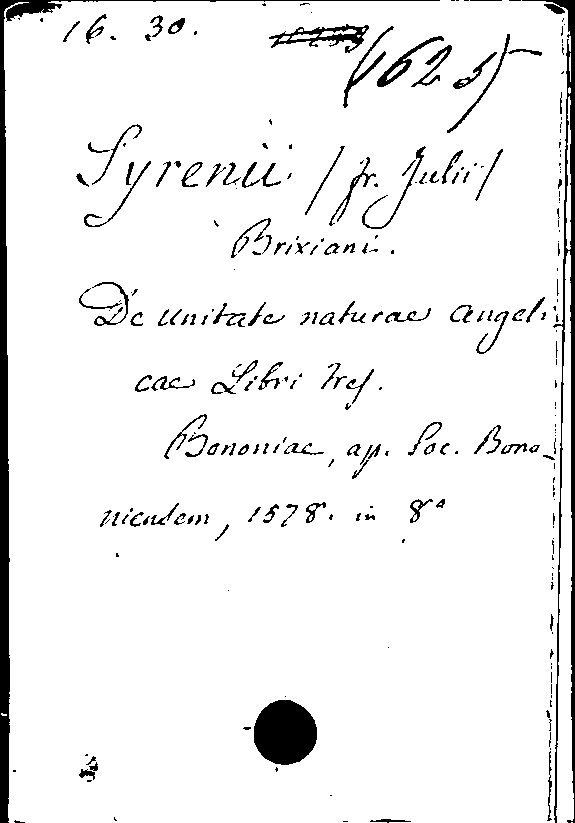 16. 30.
(1625)
Syrenii /fr. Julii/
Brixiani.
De unitate naturae angeli
cae Libri tres.
Bononiae, ap. Soc. Bono-
niensem, 1578. in 8°